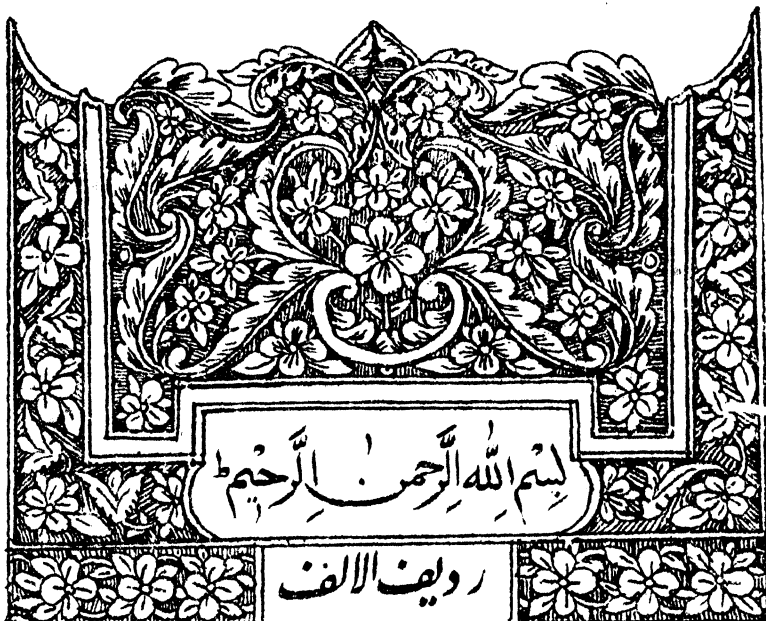 بِسْمِ اللهِ الرَّحمٰنِ الرَّحِیْمِ ط
ردیف الالف